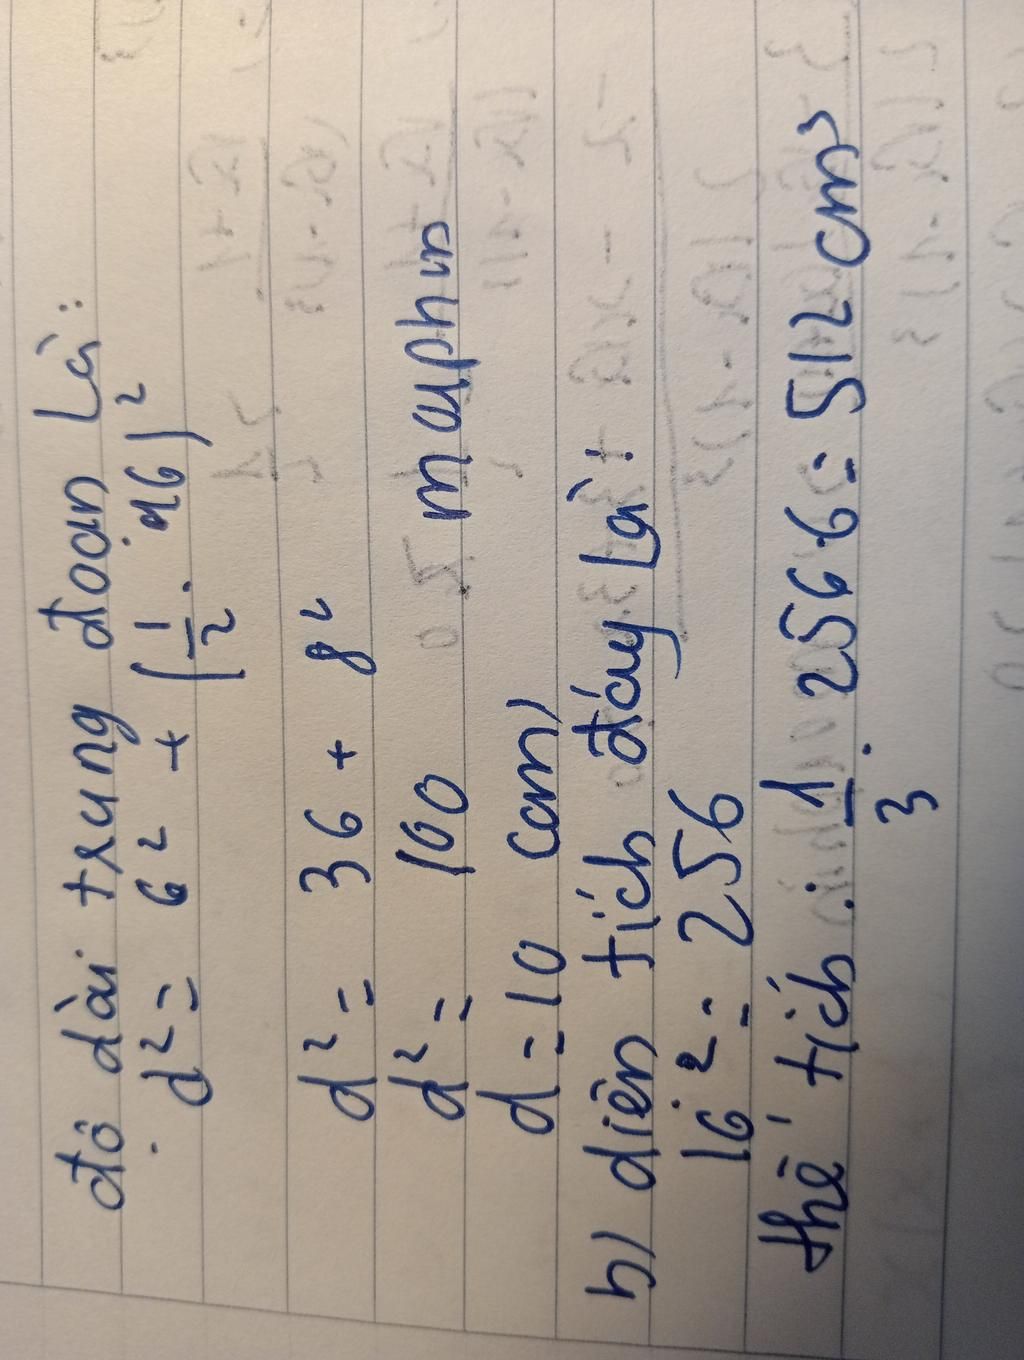 độ dài trung đoạn Là:
d² = 6² + (1/2 . 16)²
d² = 36 + 8²
d² = 100
d = 10 cm)
b) diện tích đáy Là:
16² = 256
thể tích : 1/3 . 256.6 = 512 cm³